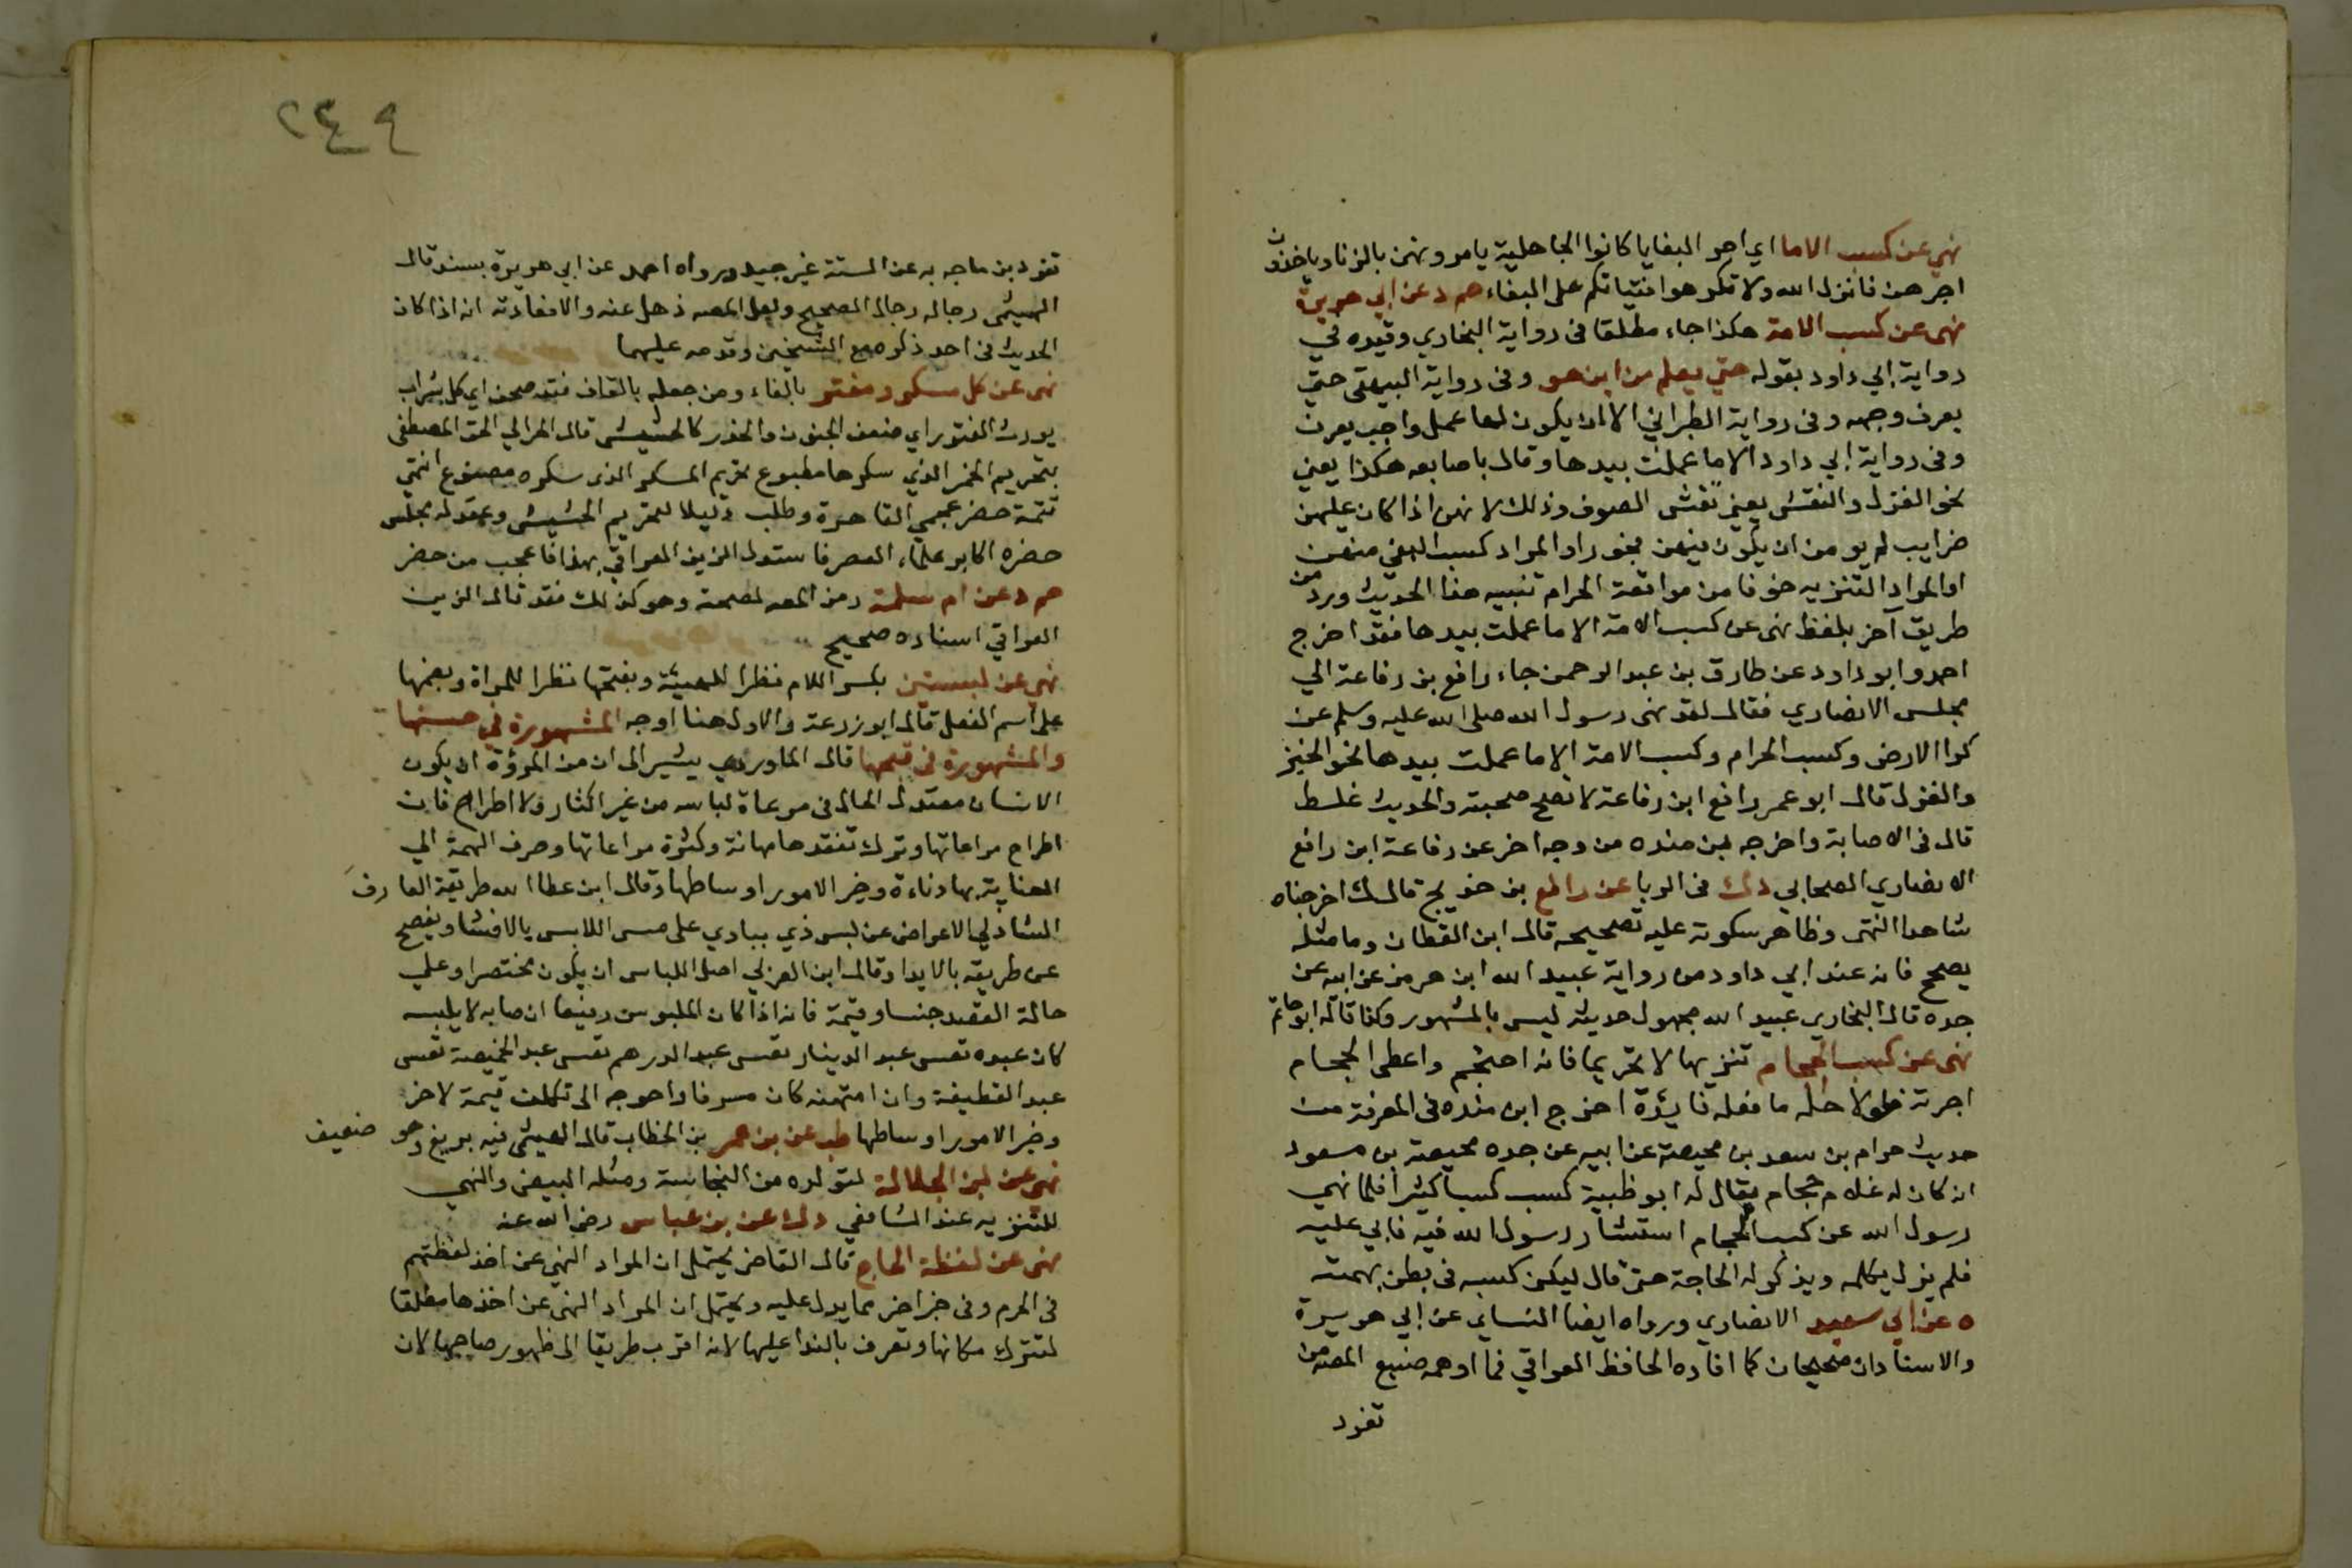 نهي عن كسب الاما اي اجر البغايا كانوا الجاهلية يامرونهن بالزنا وياخذون
اجرهن فانزل الله ولا تكرهوا فتياتكم على البغاء حم د عن ابي هريرة
نهى عن كسب الامة هكذا جاء مطلقا فى رواية البخاري وقيده في
رواية ابي داود بقوله حتي يعلم من اين هو وفى رواية البيهقى حتي
يعرف وجهه وفى رواية الطبراني الا ان يكون لها عمل واجب يعرف
وفى رواية ابي داود الا ما عملت بيدها وقال باصابعه هكذا يعني
نحو الغزل والنقش يعني نفش الصوف وذلك لانهن اذا كان عليهن
ضرايب لم يومن ان يكون فيهن فجور او المراد كسب البغي منهن
او المراد التنزيه خوفا من مواقعة الحرام تنبيه هذا الحديث ورد من
طريق آخر بلفظ نهى عن كسب الامة الا ما عملت بيدها فقد اخرج
احمد وابو داود عن طارق بن عبد الرحمن جاء رافع بن رفاعة الي
مجلس الانصاري فقال لقد نهى رسول الله صلى الله عليه وسلم عن
كرا الارض وكسب الحرام وكسب الامة الا ما عملت بيدها نحو الخبز
والغزل قال ابو عمر رافع ابن رفاعة لا تصح صحبته والحديث غلط
قال فى الاصابة واخرجه بن منده من وجه اخر عن رفاعة ابن رافع
الانصاري الصحابي د ك فى الربا عن رافع بن خديج قال ك اخرجناه
شاهدا انتهى وظاهر سكوته عليه تصحيحه قال ابن القطان وما مثله
يصحح فانه عند ابي داود من رواية عبيد الله ابن هرمز عن ابيه عن
جده قال البخاري عبيد الله مجهول حديثه ليس بالمشهور وكذا قاله ابو حاتم
نهى عن كسب الحجام تنزيها لا تحريما فانه احتجم واعطى الحجام
اجرته فلولا حله ما فعله فايدة اخرج ابن منده فى المعرفة من
حديث حرام بن سعد بن محيصة عن ابيه عن جده محيصة بن مسعود
انه كان له غلام حجام يقال له ابو ظبية كسب كسبا كثيرا فلما نهي
رسول الله عن كسب الحجام استشار رسول الله فيه فابي عليه
فلم يزل يكلمه ويذكر له الحاجة حتى قال ليكن كسبه فى بطن بهمته
ه عن ابي سعيد الانصاري ورواه ايضا النساي عن ابي هريرة
والاسنادان صحيحان كما افاده الحافظ العراقي فما اوهمه صنيع المصه من
تفرد
٢٤٩
تفرد بن ماجه به عن الستة غير جيد ورواه احمد عن ابي هريرة بسند قال
الهيثمى رجاله رجال الصحيح ولعل المصه ذهل عنه والافعادته انه اذا كان
الحديث فى احد ذكره مع الشيخين وقدمه عليهما
نهى عن كل مسكر ومفتر بالفاء ومن جعله بالقاف فقد صحف اي كل شراب
يورث الفتور اي ضعف الجفون والخدر كالحشيش قال الحرالي الحق المصطفى
بتحريم الخمر الذي سكرها مطبوع تحريم المسكر الذى سكره مصنوع انتهى
تتمة حضر عجمي القاهرة وطلب دليلا لتحريم الحشيش وعقد له مجلس
حضره اكابر علماء العصر فاستدل الزين العراقي بهذا فاعجب من حضر
حم د عن ام سلمة رمز المصه لصحته وهو كذلك فقد قال الزين
العراقي اسناده صحيح
نهي عن لبستين بكسر اللام نظرا للهيئة وبفتحها نظرا للمراة وبضمها
على اسم الفعل قال ابو زرعة والاول هنا اوجه المشهورة في حسنها
والمشهورة فى قبحها قال الماوردي يشير الى ان من المروة ان يكون
الانسان معتدل الحال فى مرعاة لباسه من غير اكثار ولا اطراح فان
اطراح مراعاتها وترك تفقدها مهانة وكثرة مراعاتها وصرف الهمة الي
العناية بها دناءة وخير الامور اوساطها وقال ابن عطا الله طريقة العارف
الشاذلي الاعراض عن لبس ذي ينادي على مس اللابس بالافشا ويفصح
عن طريقه بالابدا وقال ابن العربي اصل اللباس ان يكون مختصرا وعلي
حالة القصد جنسا وقيمة فانه اذا كان الملبوس رفيعا ان صابه لا يلبسه
كان عبده تعس عبد الدينار تعس عبد الدرهم تعس عبد الخميصة تعس
عبد القطيفة وان امتهنه كان مسرفا واحوجه الى تكلف قيمة لاخر
وخير الامور اوساطها طب عن بن عمر بن الخطاب قال الهيثمى فيه بزيغ وهو ضعيف
نهى عن لبن الجلالة لتولده من النجاسة ومثله البيض والنهي
للتنزيه عند الشافعي د ك عن بن عباس رضى الله عنه
نهى عن لقطة الحاج قال القاضى يحتمل ان المراد النهي عن اخذ لقطتهم
فى الحرم وفى خبر اخر ما يدل عليه ويحتمل ان المراد النهى عن اخذها مطلقا
لتترك مكانها وتعرف بالندا عليها لانه اقرب طريقا الى ظهور صاحبها لان